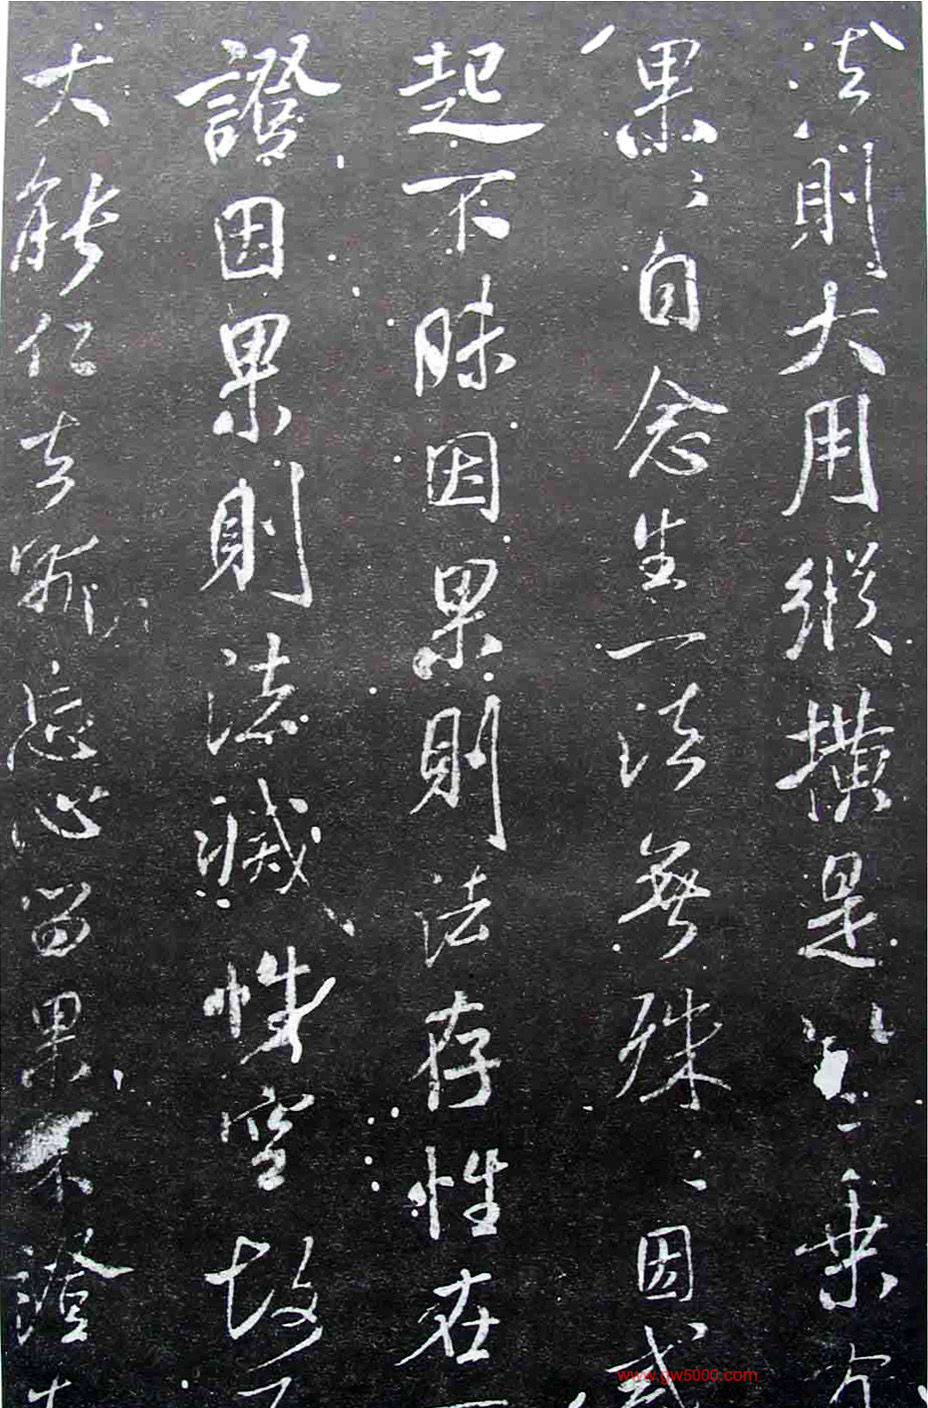 法則大用縱橫是一乘
果〻自念生一法無殊〻因
起不昧因果則法存性在
證因果則法滅性空故
大能仁忘心留果不
www.gw5000.com